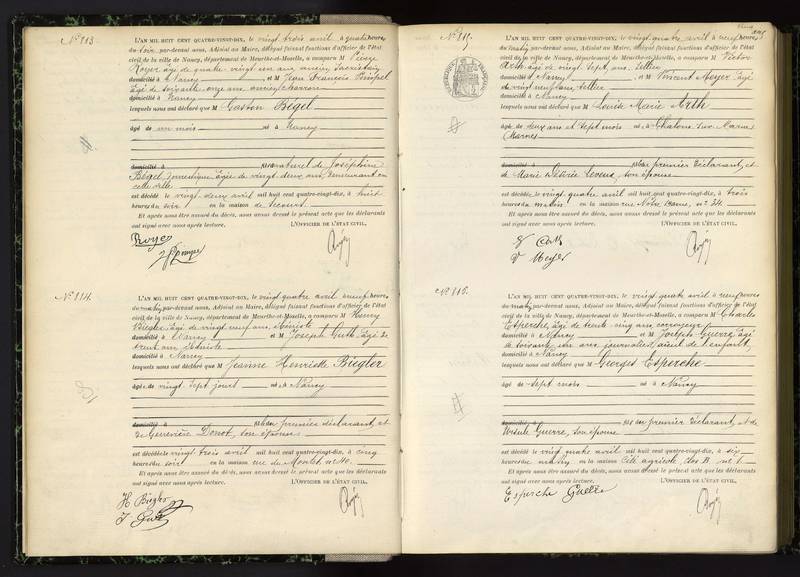 N° 113.
L'AN MIL HUIT CENT QUATRE-VINGT-DIX, le vingt trois avril à quatre heures
du soir par-devant nous, Adjoint au Maire, délégué faisant fonctions d'officier de l'état
civil de la ville de Nancy, département de Meurthe-et-Moselle, a comparu M Pierre
Royer âgé de quatre vingt un ans ancien Sacristain
domicilié à Nancy et M Jean François
âgé de soixante onze ans ancien charron
domicilié à Nancy
lesquels nous ont déclaré que M Gaston Bégel
âgé de un mois né à Nancy
domicilié à fils naturel de Joséphine
Bégel, domestique âgée de vingt deux ans, demeurant en
cette ville
est décédé le vingt deux avril mil huit cent quatre-vingt-dix, à huit
heures du soir en la maison de secours.
Et après nous être assuré du décès, nous avons dressé le présent acte que les déclarants
ont signé avec nous après lecture. L'OFFICIER DE L'ÉTAT CIVIL,
Royer
N° 114.
L'AN MIL HUIT CENT QUATRE-VINGT-DIX, le vingt quatre avril à neuf heures
du matin par-devant nous, Adjoint au Maire, délégué faisant fonctions d'officier de l'état
civil de la ville de Nancy, département de Meurthe-et-Moselle, a comparu M Henry
Biegler âgé de vingt neuf ans, ébéniste
domicilié à Nancy et M Joseph Guth âgé de
trente ans ébéniste
domicilié à Nancy
lesquels nous ont déclaré que M Jeanne Henriette Biegler
âgée de vingt sept jours née à Nancy
domicilié à fille du premier déclarant, et
de Geneviève Donot, son épouse
est décédée le vingt trois avril mil huit cent quatre-vingt-dix, à cinq
heures du soir en la maison rue du Montet n° 40.
Et après nous être assuré du décès, nous avons dressé le présent acte que les déclarants
ont signé avec nous après lecture. L'OFFICIER DE L'ÉTAT CIVIL,
H Biegler
J Guth
N° 115.
L'AN MIL HUIT CENT QUATRE-VINGT-DIX, le vingt quatre avril à neuf heures
du matin par-devant nous, Adjoint au Maire, délégué faisant fonctions d'officier de l'état
civil de la ville de Nancy, département de Meurthe-et-Moselle, a comparu M Victor
Arth âgé de vingt sept ans, sellier
domicilié à Nancy et M Vincent Meyer âgé
de vingt neuf ans sellier
domicilié à Nancy
lesquels nous ont déclaré que M Louise Marie Arth
âgée de deux ans et sept mois née à Chalons sur Marne
Marne
domicilié à fille du premier déclarant, et
de Marie Désirée son épouse
est décédée le vingt quatre avril mil huit cent quatre-vingt-dix, à trois
heures du matin en la maison rue Notre Dame, n° 34.
Et après nous être assuré du décès, nous avons dressé le présent acte que les déclarants
ont signé avec nous après lecture. L'OFFICIER DE L'ÉTAT CIVIL,
V Arth
V Meyer
L'AN MIL HUIT CENT QUATRE-VINGT-DIX, le vingt quatre avril à neuf heures
du matin par-devant nous, Adjoint au Maire, délégué faisant fonctions d'officier de l'état
civil de la ville de Nancy, département de Meurthe-et-Moselle, a comparu M Charles
Esperche, âgé de trente cinq ans corroyeur
domicilié à Nancy et M Joseph Guerre, âgé
de soixante un ans journalier, aïeul de l'enfant,
domicilié à Nancy
lesquels nous ont déclaré que M Georges Esperche
âgé de sept mois né à Nancy
domicilié à fils du premier déclarant, et de
Ursule Guerre, son épouse
est décédé le vingt quatre avril mil huit cent quatre-vingt-dix, à six
heures du matin en la maison Cité agricole clos B n° 1.
Et après nous être assuré du décès, nous avons dressé le présent acte que les déclarants
ont signé avec nous après lecture. L'OFFICIER DE L'ÉTAT CIVIL,
Esperche